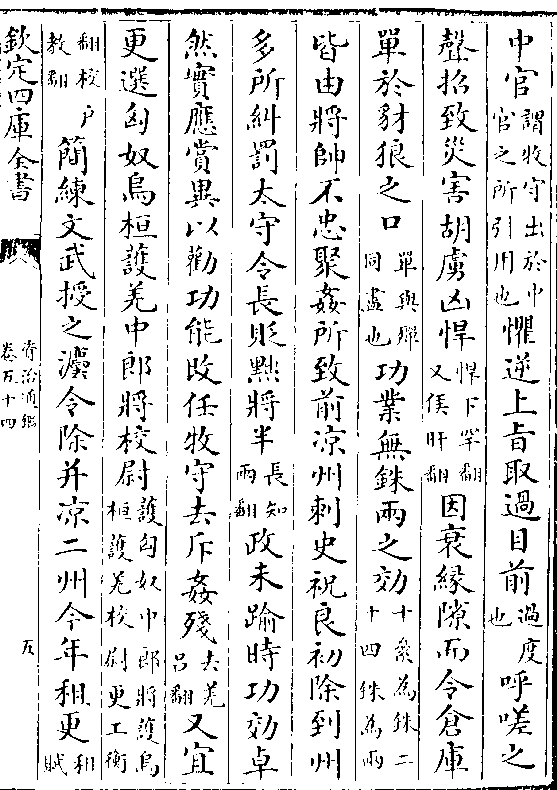 中官謂牧守出於中官之所引用也懼逆上旨取過目前過度也呼嗟之
聲招致災害胡虜凶悍悍下罕翻又侯旰翻因衰緣隙而令倉庫
單於豺狼之口單與殫同盡也功業無銖兩之効十絫為銖二十四銖為兩
皆由將帥不忠聚姦所致前凉州刺史祝良初除到州
多所糾罰太守令長貶黜將半長知兩翻政未踰時功効卓
然實應賞異以勸功能改任牧守去斥姦殘去羌呂翻又宜
更選匈奴烏桓護羌中郎將校尉護匈奴中郎將護烏桓護羌校尉更工衡
翻校户教翻簡練文武授之灋令除并凉二州今年租更租賦
欽定四庫全書
資治通鑑
卷五十四
五